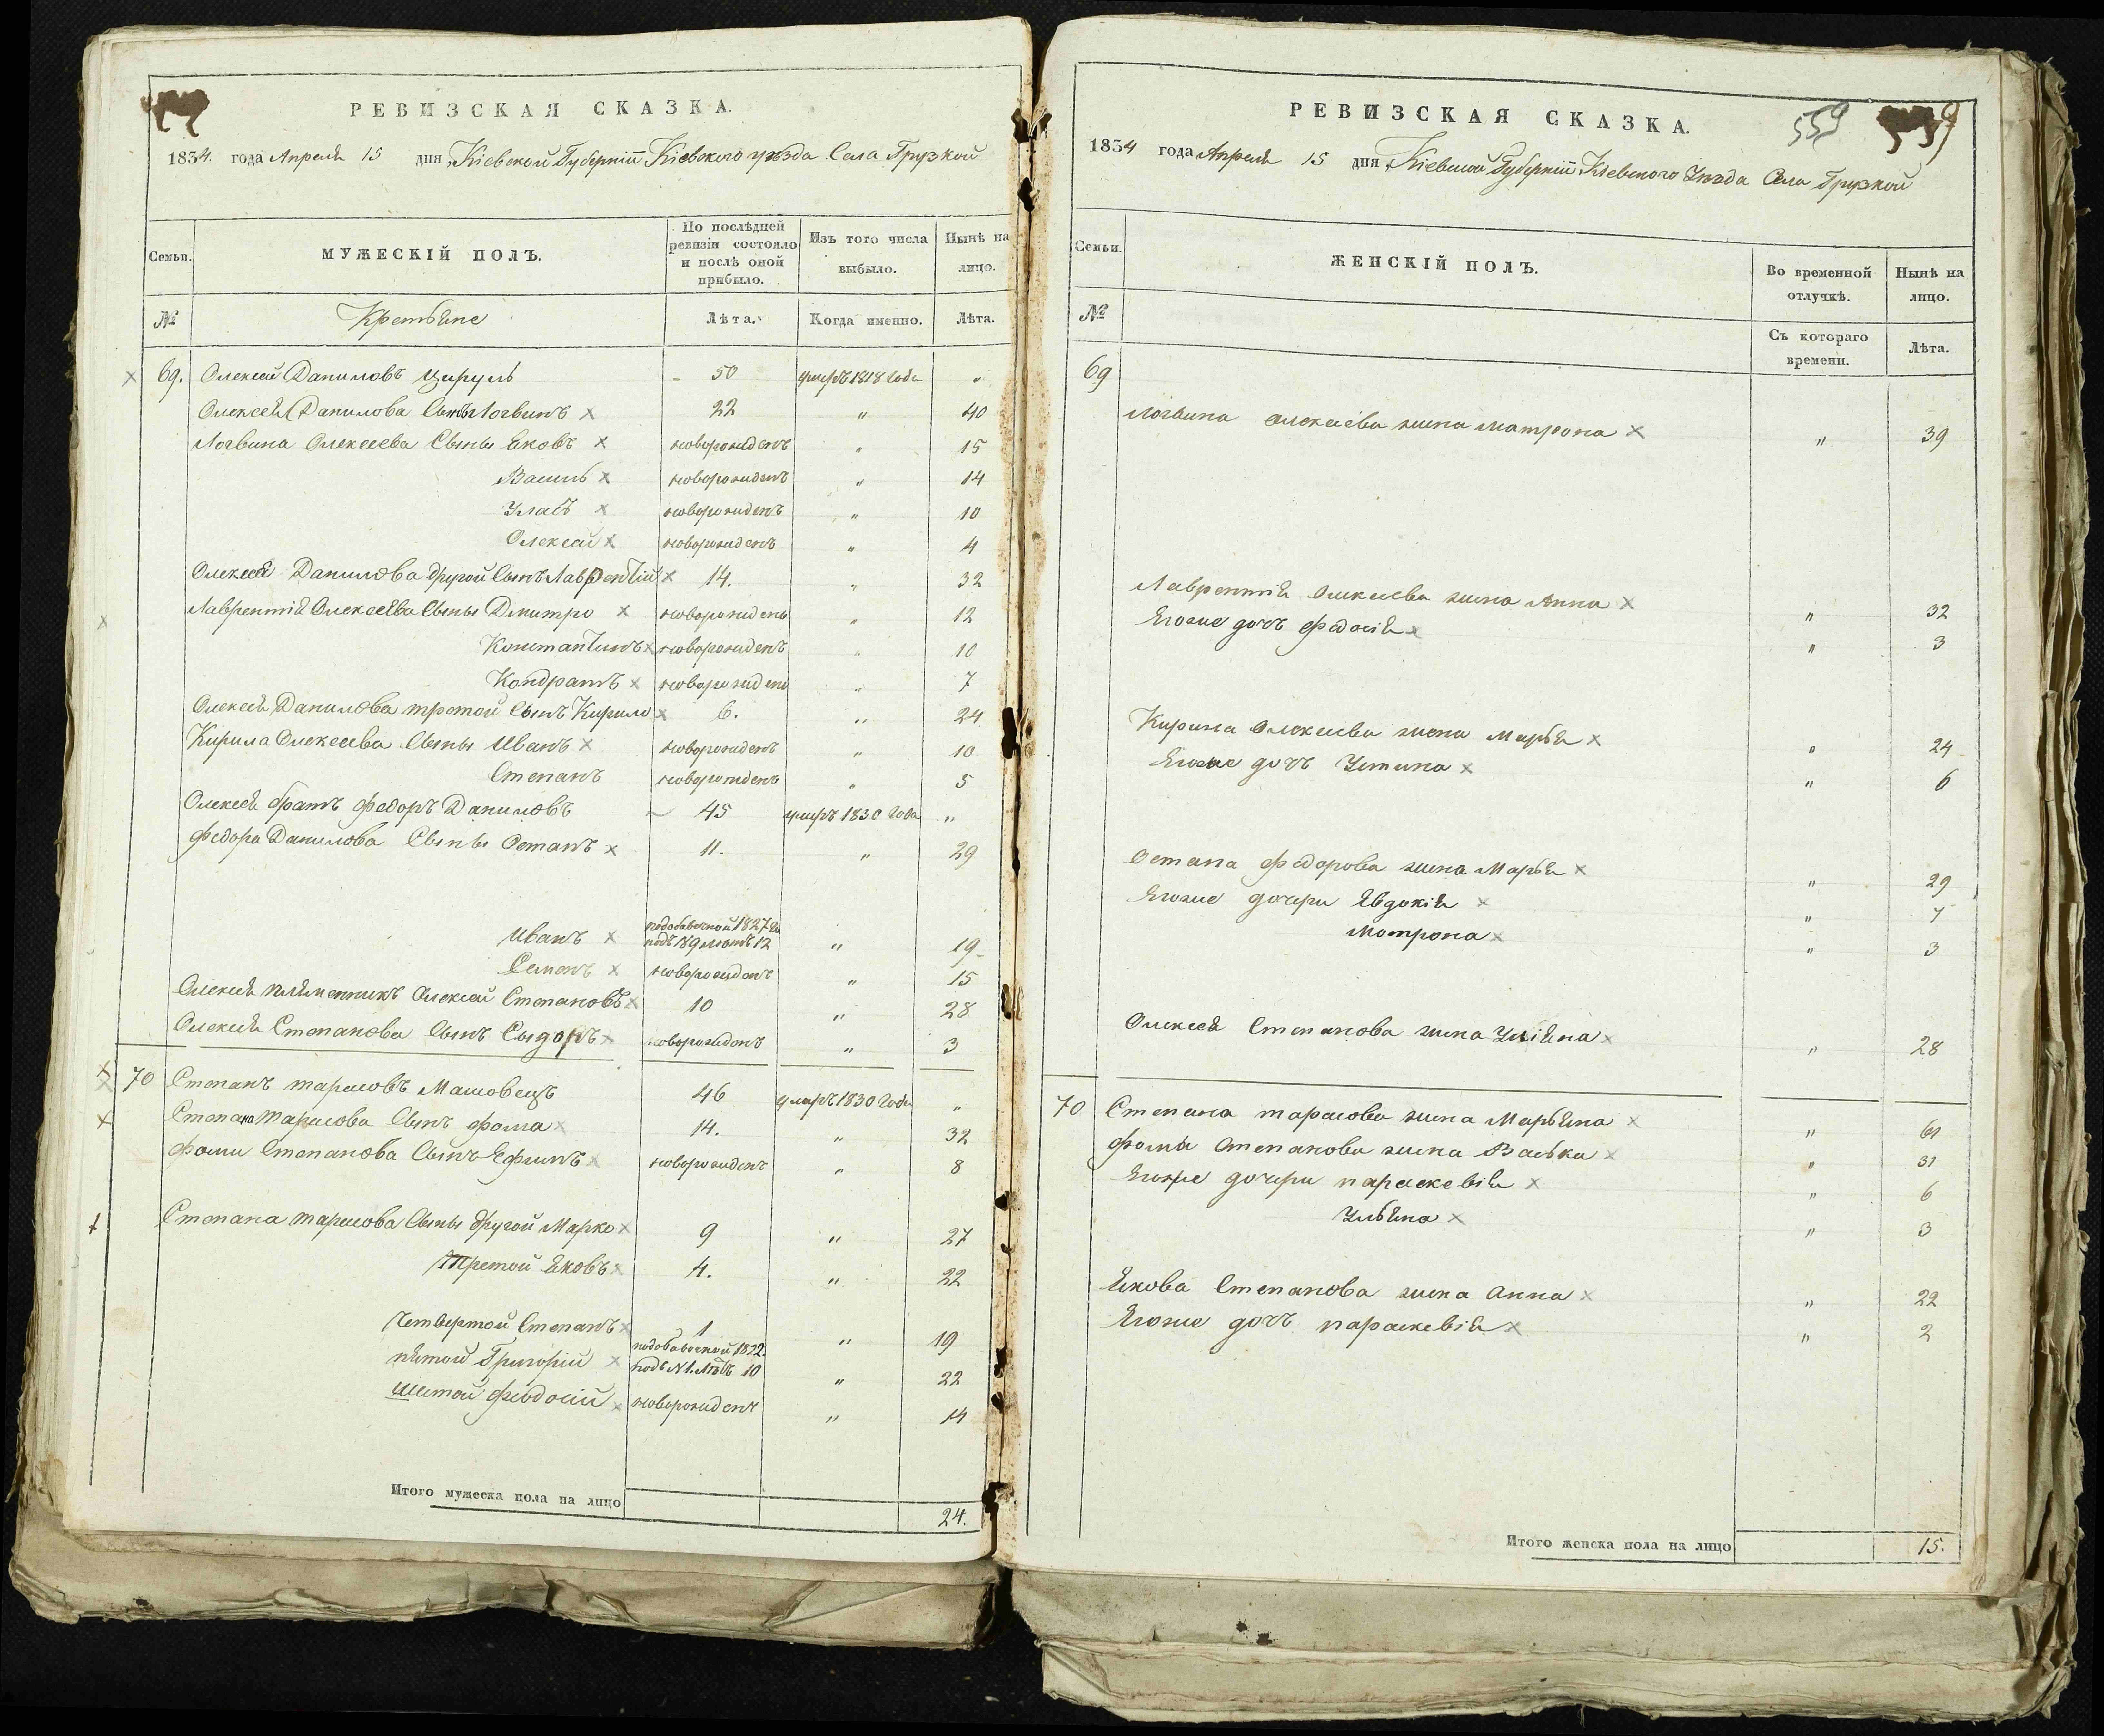 РЕВИЗСКАЯ СКАЗКА.
1834. года Апреля 15 дня, Кіевской Губерніи Кіевского уѣзда Села Грузкой
Семьи. МУЖЕСКІЙ ПОЛЪ. По послѣдней ревизіи состояло и послѣ оной прибыло. Изъ того числа выбыло. Нынѣ на лицо.
№ Крестьяне Лѣта. Когда именно. Лѣта.
69. Олексей Даниловъ Цируль 50 умеръ 1818 года "
Олексея Данилова Сынъ Логвинъ 22 " 40
Логвина Олексеева Сыны Яковъ новорожденъ " 15
Василь новорожденъ " 14
Уласъ новорожденъ " 10
Олексей новорожденъ " 4
Олексея Данилова другой Сынъ Лаврентій 14. " 32
Лаврентія Олексеева Сыны Дмитро новорожденъ " 12
Константинъ новорожденъ " 10
Кондратъ новорожденъ " 7
Олексея Данилова третой Сынъ Кирило 6. " 24
Кирила Олексеева Сыны Иванъ новорожденъ " 10
Степанъ новорожденъ " 5
Олексея братъ Федоръ Даниловъ 45 умеръ 1830 года "
Федора Данилова Сыны Остапъ 11. " 29
Иванъ подобавочной 1827 го подъ 189 лѣтъ 12 " 19
Семенъ новорожденъ " 15
Олексея племенникъ Олексей Степановъ 10 " 28
Олексея Степанова Сынъ Сыдоръ новорожденъ " 3
70 Степанъ Тарасовъ Машовецъ 46 умеръ 1830 года "
Степана Тарасова Сынъ Фома 14. " 32
Фомы Степанова Сынъ Ефимъ новорожденъ " 8
Степана Тарасова Сыны другой Марко 9 " 27
Третой Яковъ 4. " 22
Четвертой Степанъ 1 " 19
пятой Григорій подобавочной 1822. подъ N 1. лѣтъ 10 " 22
шестой Феодосій новорожденъ " 14
Итого мужеска пола на лицо 24.
РЕВИЗСКАЯ СКАЗКА. 559
1834 года Апреля 15 дня, Кіевской Губерніи Кіевского Уѣзда Села Грузкой
Семьи. ЖЕНСКІЙ ПОЛЪ. Во временной отлучкѣ. Нынѣ на лицо.
№ Съ котораго времени. Лѣта.
69
Логвина Олексеева жена Матрона " 39
Лаврентія Олексеева жена Анна " 32
Егоже дочь Федосія " 3
Кирила Олексеева жена Марья " 24
Егоже дочь Устина " 6
Остапа Федорова жена Марья " 29
Егоже дочери Явдокія " 7
Мотрона " 3
Олексея Степанова жена Уліяна " 28
70 Степана Тарасова жена Марьяна " 61
Фомы Степанова жена Васька " 31
Егоже дочери Параскевія " 6
Ульяна " 3
Якова Степанова жена Анна " 22
Егоже дочь Параскевія " 2
Итого женска пола на лицо 15.